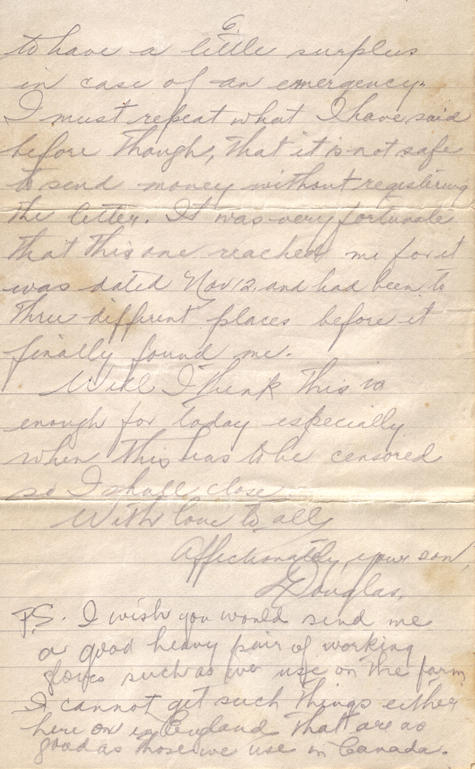 6
to have a little surplus
in case of an emergency.
I must repeat what I have said
before though, that it is not safe
to send money without registering
the letter. It was very fortunate
that this one reached me for it
was dated Nov 12, and had been to
three different places before it
finally found me.
Well I think this is
enough for today especially
when this has to be censored
so I shall close
With love to all,
Affectionately, your son,
Douglas.
P.S. I wish you would send me
a good heavy pair of working
gloves such as we use on the farm
I cannot get such things either
here or in England that are as
good as those we use in Canada.